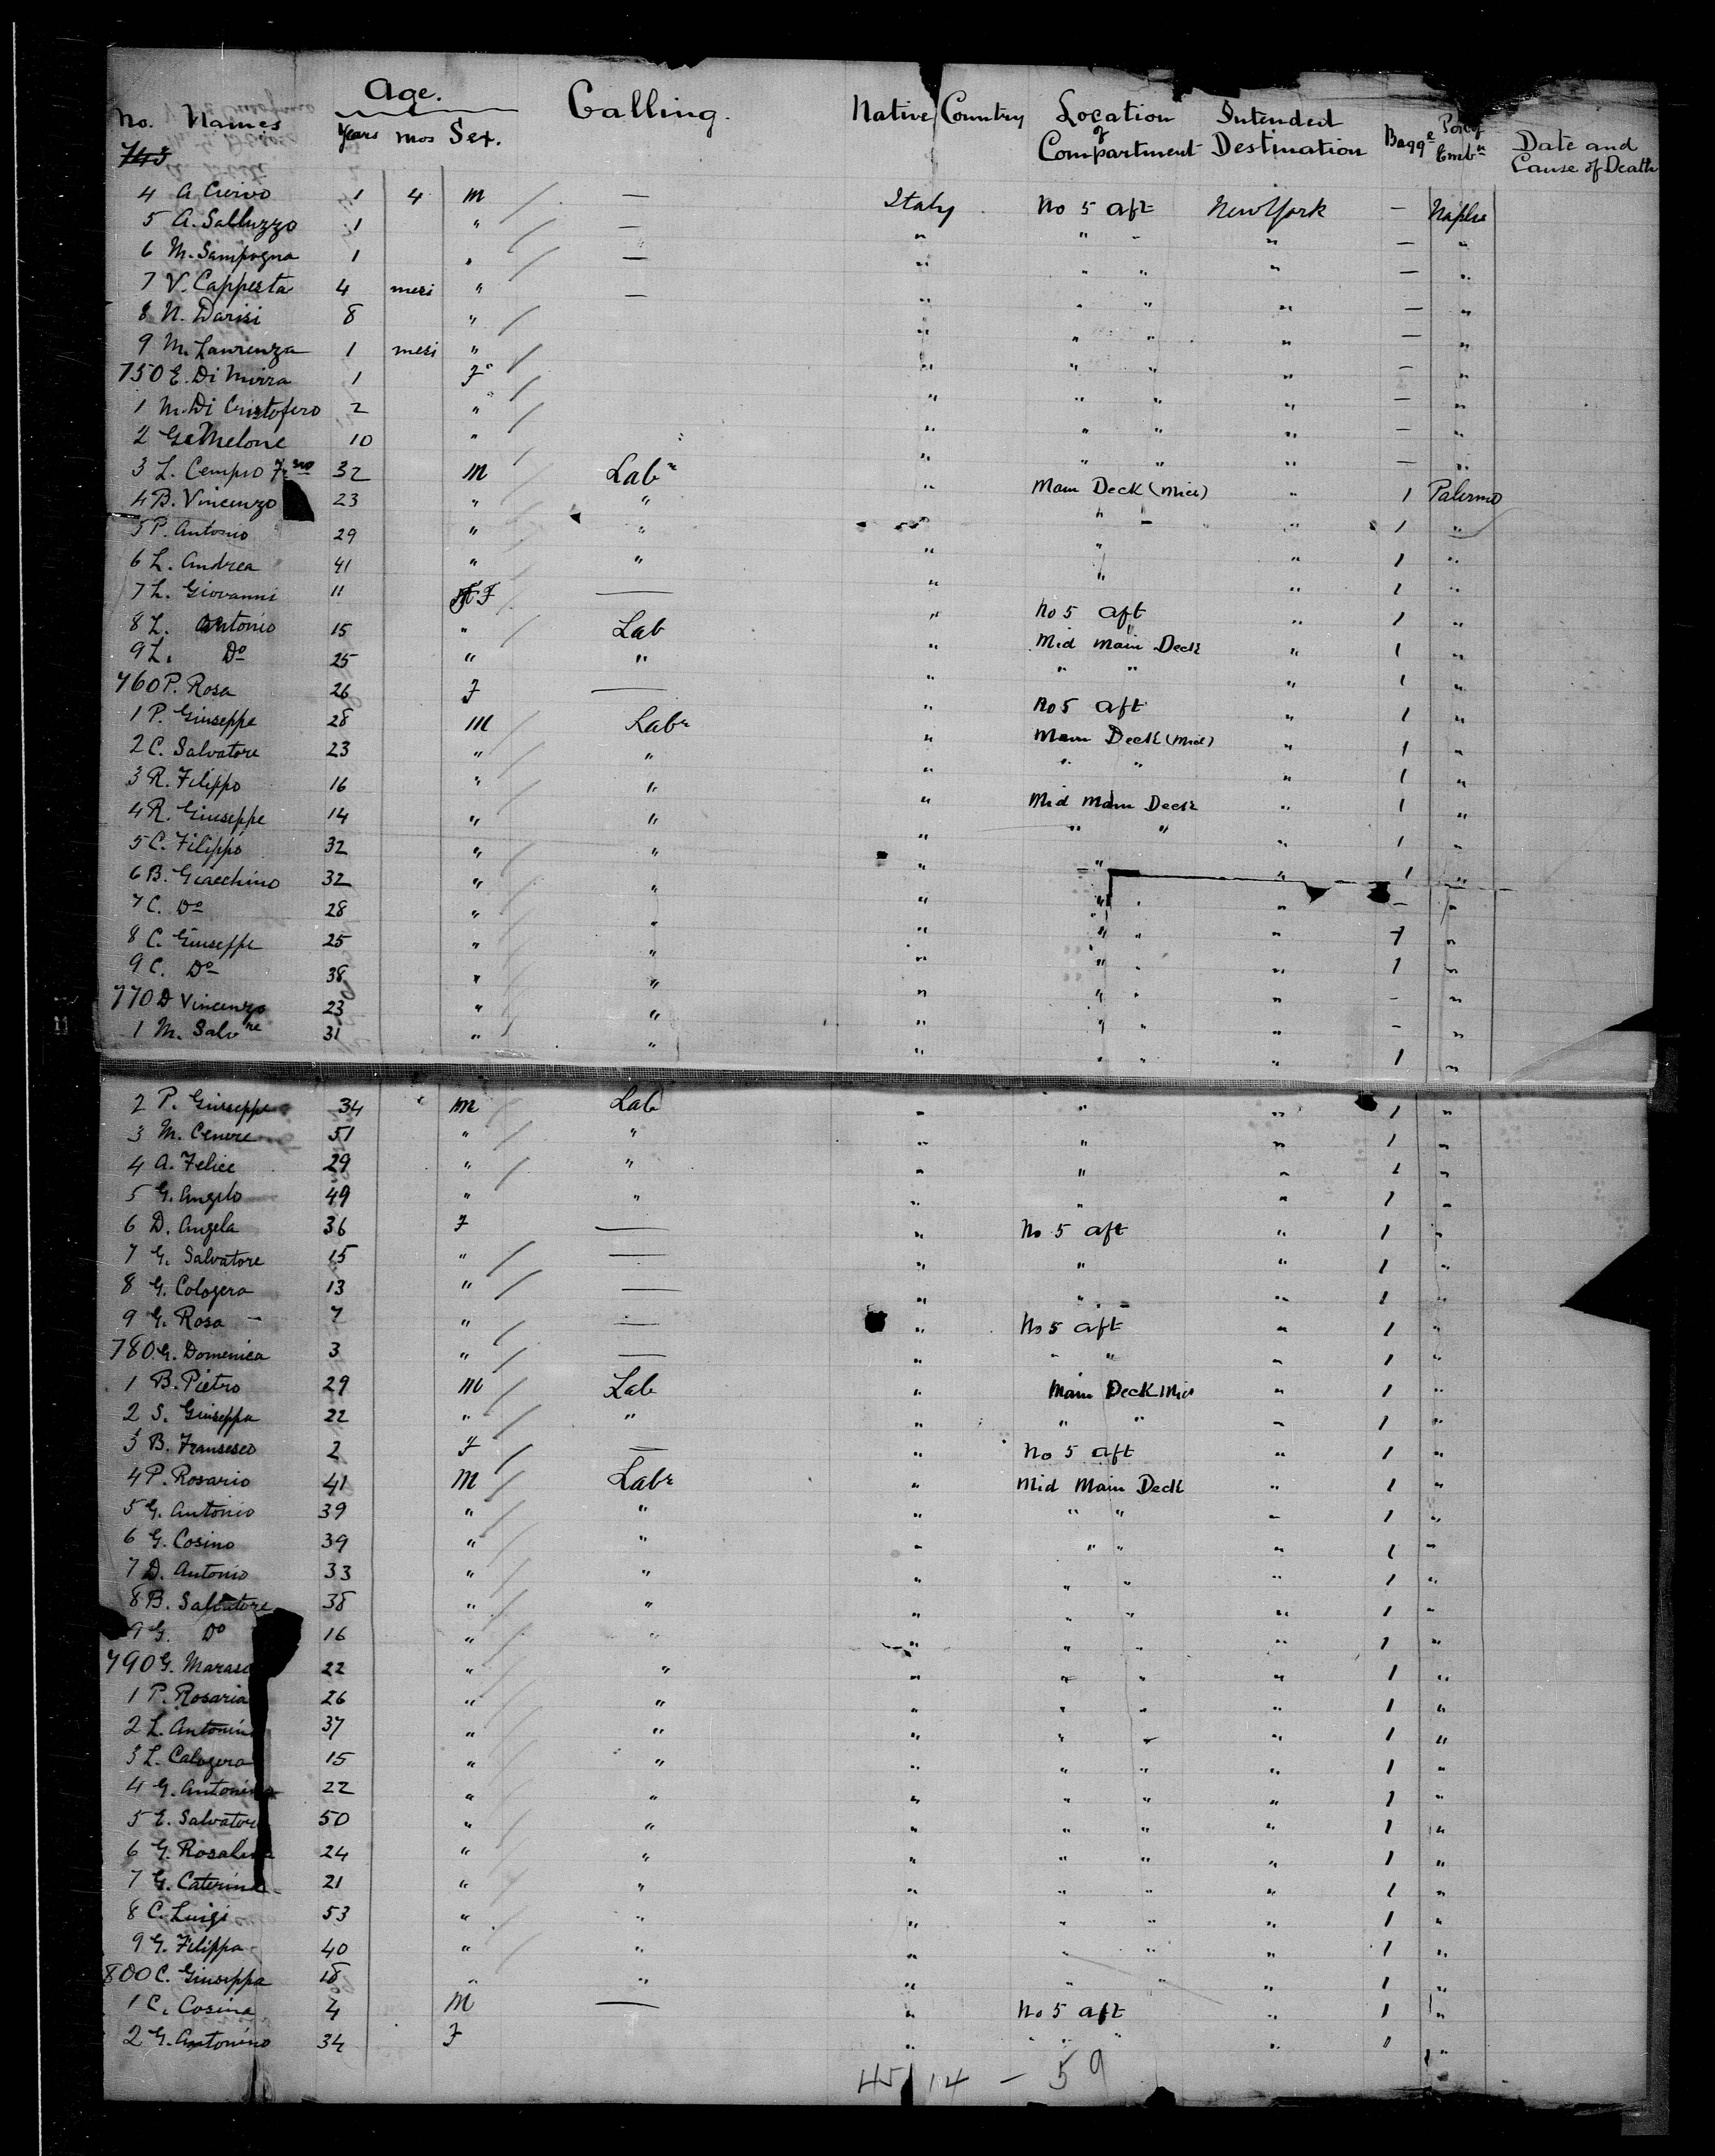 Age.
No. Names Years Mos Sex. Calling. Native Country Location of Compartment Intended Destination Bagge Port of Embn Date and Cause of Death
743
4 A 1 4 M — Italy No 5 aft New York — Naples
5 A. Salluzzo 1 " — " " " " — "
6 M. Sampogna 1 " — " " " " — "
7 V. Capperta 4 mesi " — " " " " — "
8 N. Darisi 8 " " " " " — "
9 M. Laurenza 1 mesi " " " " " — "
750 E. Di 1 F " " " " — "
1 M. Di Cristofero 2 " " " " " — "
2 G. Melone 10 " " " " " — "
3 L. 32 M Labr " Main Deck (Mid) " 1 Palermo
4 B. Vincenzo 23 " " " " " 1 "
5 P. Antonio 29 " " " " " 1 "
6 L. Andrea 41 " " " " " 1 "
7 L. Giovanni 11 F — " No 5 aft " 1 "
8 L. Antonio 15 " Lab " Mid Main Deck " 1 "
9 L. Do 25 " " " " " " 1 "
760 P. Rosa 26 F — " No 5 aft " 1 "
1 P. Giuseppe 28 M Labr " Main Deck (Mid) " 1 "
2 C. Salvatore 23 " " " " " " 1 "
3 R. Filippo 16 " " " Mid Main Deck " 1 "
4 R. Giuseppe 14 " " " " " " 1 "
5 C. Filippo 32 " " " " " 1 "
6 B. Giacchino 32 " " " " " " — "
7 C. Do 28 " " " " " " 1 "
8 C. Giuseppe 25 " " " " " " 1 "
9 C. Do 38 " " " " " " - "
770 D Vincenzo 23 " " " " " " - "
1 M. Salvre 31 " " " " " " 1 "
2 P. Giuseppe 34 M Lab " " " 1 "
3 M. Cenere 51 " " " " " 1 "
4 A. Felice 29 " " " " " 1 "
5 G. Angelo 49 " " " " " 1 "
6 D. Angela 36 F — " No 5 aft " 1 "
7 G. Salvatore 15 " — " " " 1 "
8 G. Cologera 13 " — " " " 1 "
9 G. Rosa 7 " — " No 5 aft " 1 "
780 G. Domenica 3 " — " " " " 1 "
1 B. Pietro 29 M Lab " Main Deck Mid " 1 "
2 S. Giuseppa 22 " " " " " " 1 "
3 B. Fransesco 2 F — " No 5 aft " 1 "
4 P. Rosario 41 M Labr " Mid Main Deck " 1 "
5 G. Antonio 39 " " " " " " 1 "
6 G. Cosino 39 " " " " " " 1 "
7 D. Antonio 33 " " " " " " 1 "
8 B. Salvatore 38 " " " " " " 1 "
9 G. Do 16 " " " " " " 1 "
790 G. 22 " " " " " " 1 "
1 P. Rosaria 26 " " " " " " 1 "
2 L. 37 " " " " " " 1 "
3 L. Calogera 15 " " " " " " 1 "
4 G. 22 " " " " " " 1 "
5 E. Salvatore 50 " " " " " " 1 "
6 G. 24 " " " " " " 1 "
7 G. Caterina 21 " " " " " " 1 "
8 C. Luigi 53 " " " " " " 1 "
9 G. Filippa 40 " " " " " " 1 "
800 C. Giuseppa 18 " " " " " " 1 "
1 C. Cosina 4 M — " No 5 aft " 1 "
2 G. Antonino 34 F " " " " 1 "
45 14 — 59